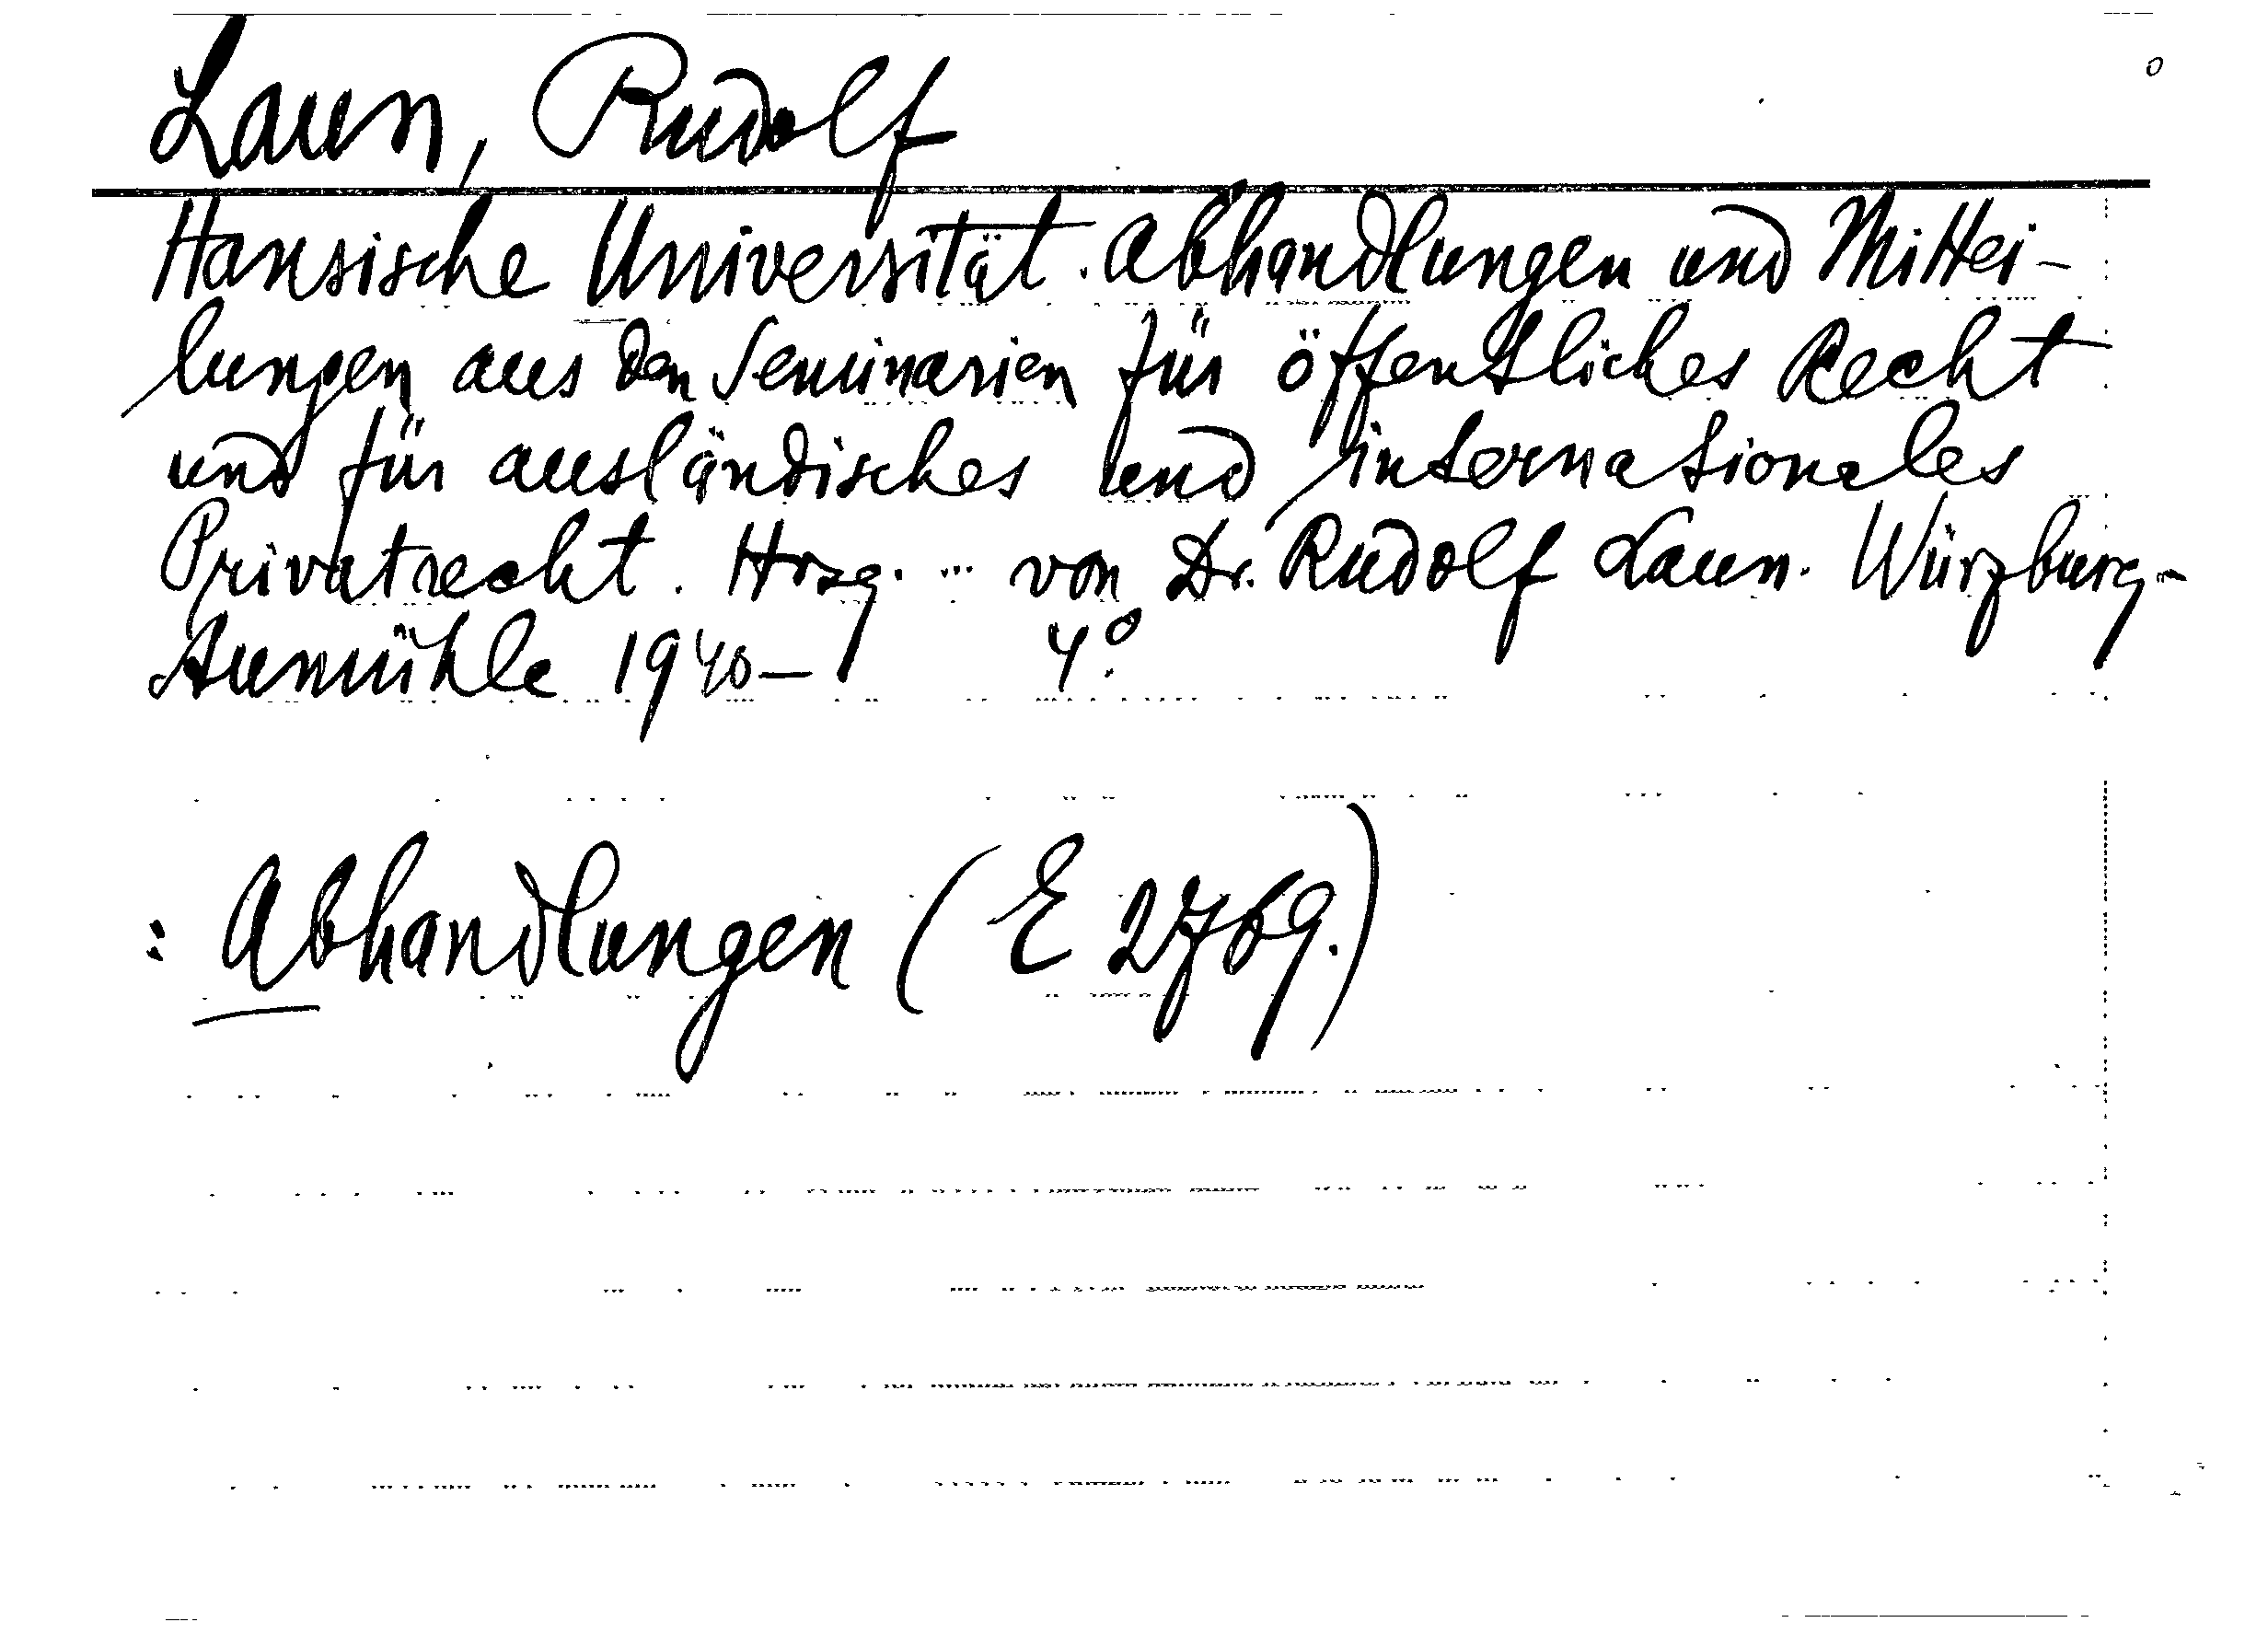 Laun, Rudolf
Hansische Universität. Abhandlungen und Mittei-
lungen aus den Seminarien für öffentliches Recht
und für ausländisches und internationales
Privatrecht. Hrsg. ... von Dr. Rudolf Laun. Würzburg-
Aumühle 1940- 4°.
: Abhandlungen (E 2769.)